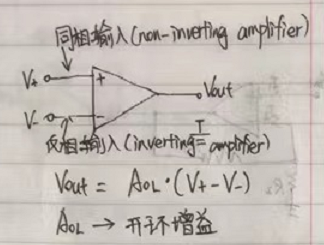 同相输入(non-inverting amplifier)
V+ + Vout
V- -
反相输入(inverting amplifier)
Vout = AOL·(V+-V-)
AOL → 开环增益